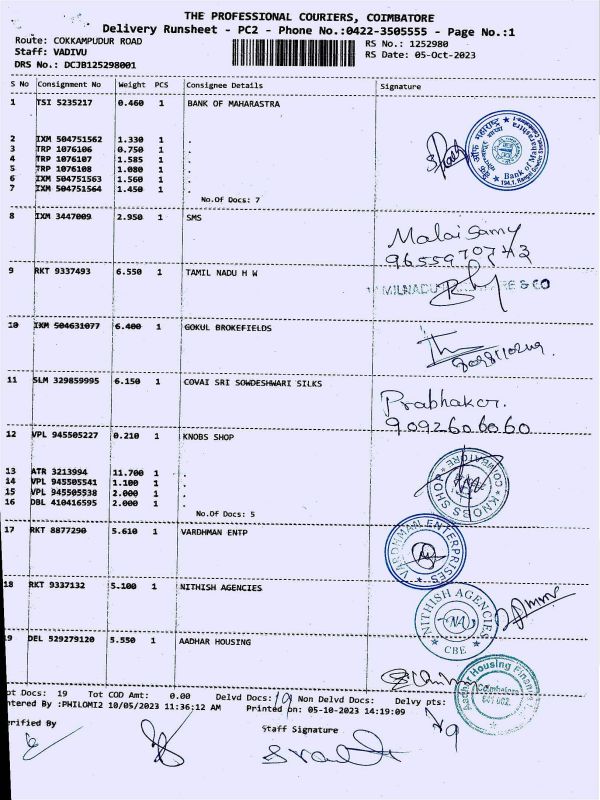 THE PROFESSIONAL COURIERS, COIMBATORE
Delivery Runsheet - PC2 - Phone No.:0422-3505555 - Page No.:1
Route: COKKAMPUDUR ROAD
Staff: VADIVU
DRS No.: DCJB125298001
RS No.: 1252980
RS Date: 05-Oct-2023
S No Consignment No Weight PCS Consignee Details Signature
1 TSI 5235217 0.460 1 BANK OF MAHARASTRA
2 IXM 504751562 1.330 1 .
3 TRP 1076106 0.750 1 .
4 TRP 1076107 1.585 1 .
5 TRP 1076108 1.080 1 .
6 IXM 504751563 1.560 1 .
7 IXM 504751564 1.450 1 .
No.Of Docs: 7
Bank of Maharashtra
8 IXM 3447009 2.950 1 SMS
Malai Samy
9 RKT 9337493 6.550 1 TAMIL NADU H W
MILNADU RE & CO
10 IXM 504631077 6.400 1 GOKUL BROKEFIELDS
11 SLM 329859995 6.150 1 COVAI SRI SOWDESHWARI SILKS
Prabhakar.
9092606060
12 VPL 945505227 0.210 1 KNOBS SHOP
13 ATR 3213994 11.700 1 .
14 VPL 945505541 1.100 1 .
15 VPL 945505538 2.000 1 .
16 DBL 410416595 2.000 1 .
No.Of Docs: 5
KNOBS SHOP * COIMBATORE *
17 RKT 8877290 5.610 1 VARDHMAN ENTP
VARDHMAN ENTERPRISES
18 RKT 9337132 5.100 1 NITHISH AGENCIES
NITHISH AGENCIES
(NA)
CBE
19 DEL 529279120 5.550 1 AADHAR HOUSING
Aadhar Housing Finance
Coimbatore
641 002.
ot Docs: 19 Tot COD Amt: 0.00 Delvd Docs: 19 Non Delvd Docs: Delvy pts:
ntered By :PHILOMI2 10/05/2023 11:36:12 AM Printed on: 05-10-2023 14:19:09
erified By
Staff Signature